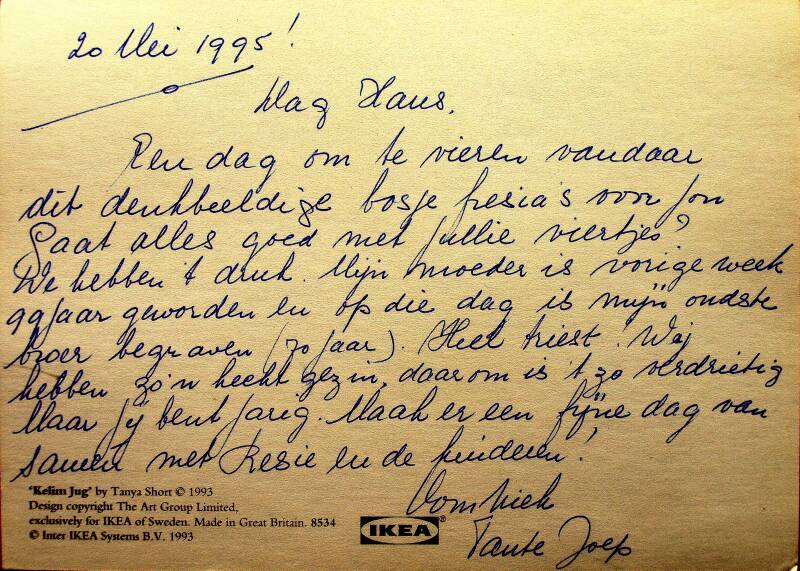 20 Mei 1995!
Dag Hans,
Een dag om te vieren vandaar
dit denkbeeldige bosje fresia's voor jou
Gaat alles goed met jullie viertjes?
We hebben 't druk. Mijn moeder is vorige week
99 jaar geworden en op die dag is mijn oudste
broer begraven (70 jaar). Heel triest. Wij
hebben zo'n hecht gezin, daarom is 't zo verdrietig
Maar jij bent jarig. Maak er een fijne dag van
samen met Resie en de kinderen!
Oom Niek
Tante Joep
'Kelim Jug' by Tanya Short © 1993
Design copyright The Art Group Limited,
exclusively for IKEA of Sweden. Made in Great Britain. 8534
© Inter IKEA Systems B.V. 1993
IKEA®